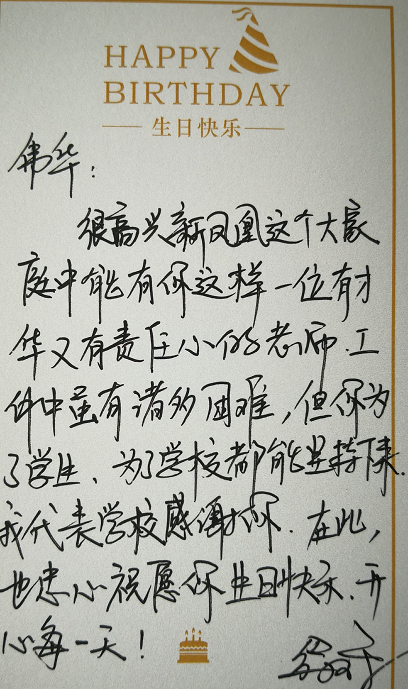 HAPPY
BIRTHDAY
生日快乐
伟华：
很高兴新凤凰这个大家
庭中能有你这样一位有才
华又有责任心的老师.工
作中虽有诸多困难，但你为
了学生、为了学校都能坚持下来.
我代表学校感谢你.在此，
也忠心祝愿你生日快乐.开
心每一天！